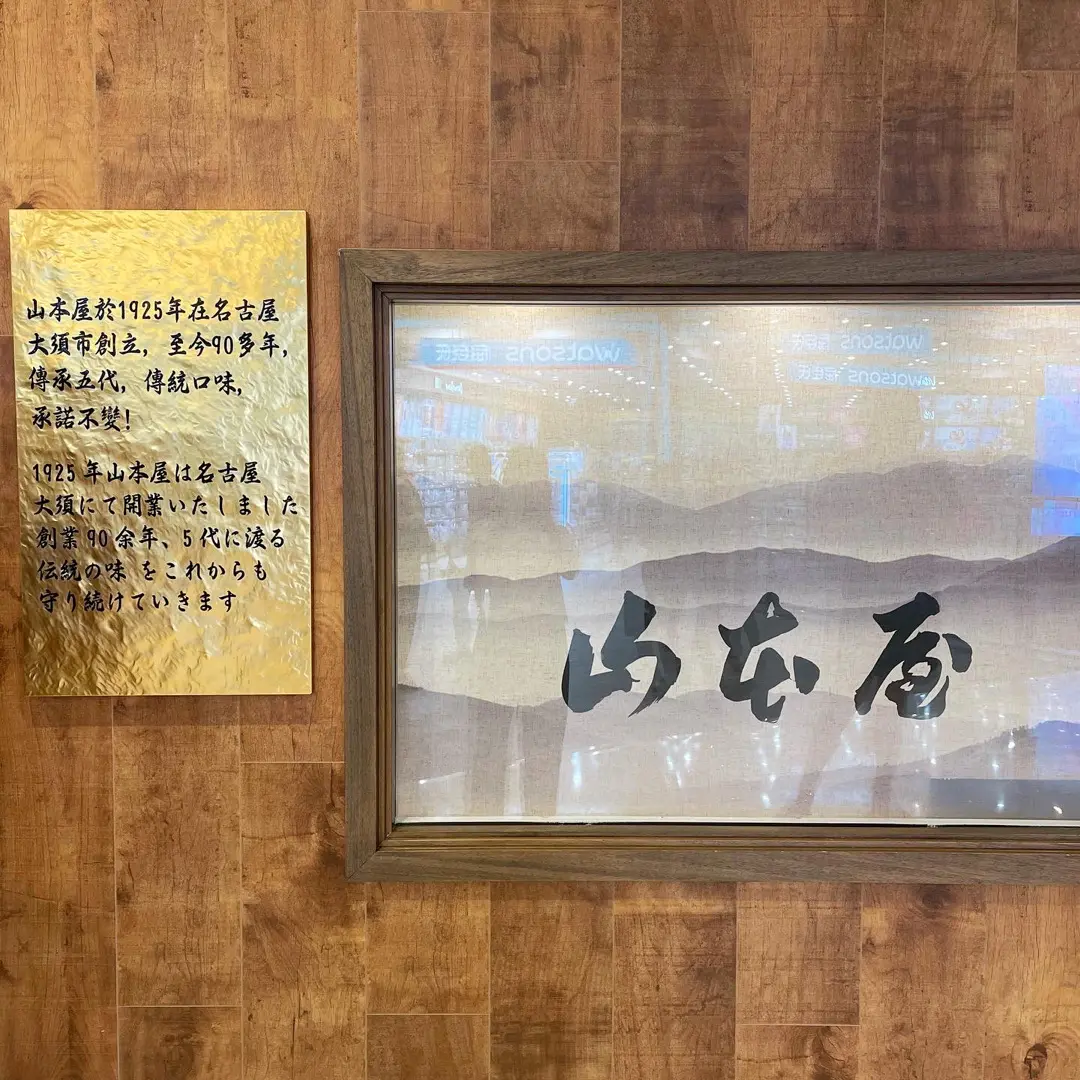 山本屋於1925年在名古屋
大須市創立，至今90多年，
傳承五代，傳統口味，
承諾不變！
1925年山本屋は名古屋
大須にて開業いたしました
創業90余年、5代に渡る
伝統の味 をこれからも
守り続けていきます
山本屋
watsons 屈臣氏
watsons 屈臣氏
watsons 屈臣氏